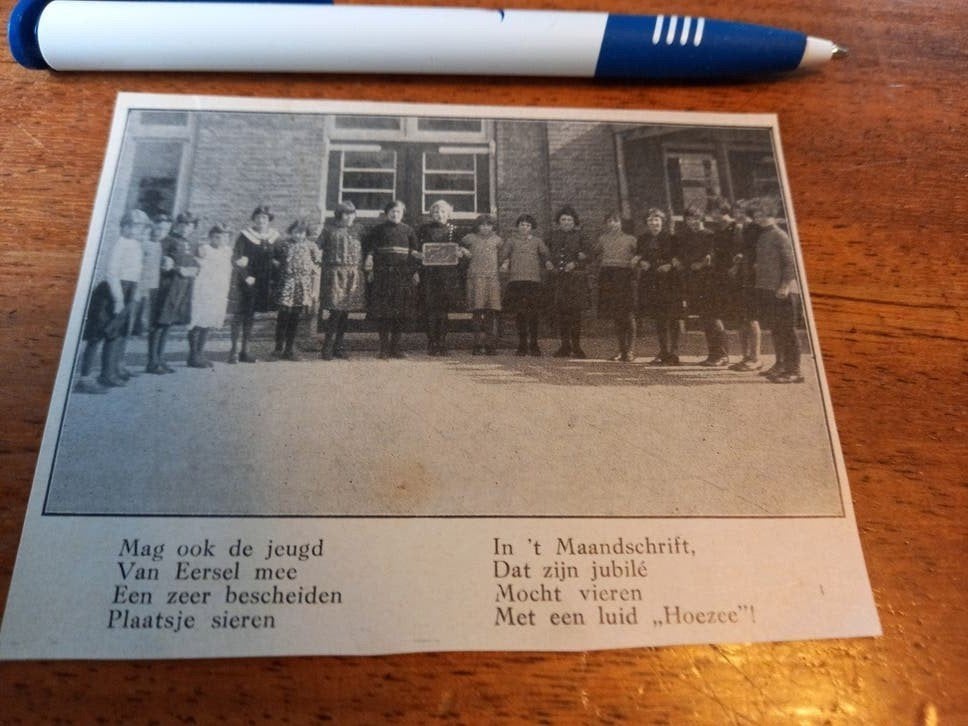 Mag ook de jeugd
Van Eersel mee
Een zeer bescheiden
Plaatsje sieren
In 't Maandschrift,
Dat zijn jubilé
Mocht vieren
Met een luid „Hoezee"!